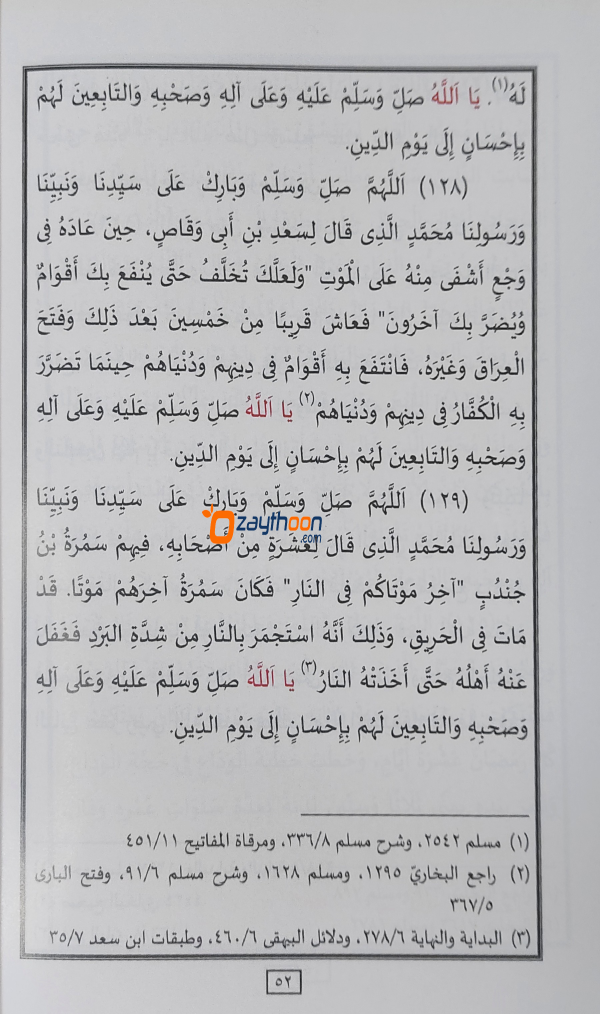 لَهُ(١). يَا اَللَّهُ صَلِّ وَسَلِّمْ عَلَيْهِ وَعَلَى آلِهِ وَصَحْبِهِ وَالتَّابِعِينَ لَهُمْ
بِإِحْسَانٍ إِلَى يَوْمِ الدِّينِ.
(١٢٨) اَللَّهُمَّ صَلِّ وَسَلِّمْ وَبَارِكْ عَلَى سَيِّدِنَا وَنَبِيِّنَا
وَرَسُولِنَا مُحَمَّدٍ الَّذِى قَالَ لِسَعْدِ بْنِ أَبِى وَقَاصٍ، حِينَ عَادَهُ فِى
وَجْعٍ أَشْفَى مِنْهُ عَلَى الْمَوْتِ "وَلَعَلَّكَ تُخَلَّفُ حَتَّى يُنْفَعَ بِكَ أَقْوَامٌ
وَيُضَرَّ بِكَ آخَرُونَ" فَعَاشَ قَرِيبًا مِنْ خَمْسِينَ بَعْدَ ذَلِكَ وَفَتَحَ
الْعِرَاقَ وَغَيْرَهُ، فَانْتَفَعَ بِهِ أَقْوَامٌ فِى دِينِهِمْ وَدُنْيَاهُمْ حِينَمَا تَضَرَّرَ
بِهِ الْكُفَّارُ فِى دِينِهِمْ وَدُنْيَاهُمْ(٢) يَا اَللَّهُ صَلِّ وَسَلِّمْ عَلَيْهِ وَعَلَى آلِهِ
وَصَحْبِهِ وَالتَّابِعِينَ لَهُمْ بِإِحْسَانٍ إِلَى يَوْمِ الدِّينِ.
(١٢٩) اَللَّهُمَّ صَلِّ وَسَلِّمْ وَبَارِكْ عَلَى سَيِّدِنَا وَنَبِيِّنَا
zaythoon.com
وَرَسُولِنَا مُحَمَّدٍ الَّذِى قَالَ لِعَشَرَةٍ مِنْ أَصْحَابِهِ، فِيهِمْ سَمُرَةُ بْنُ
جُنْدُبٍ "آخِرُ مَوْتَاكُمْ فِى النَارِ" فَكَانَ سَمُرَةُ آخِرَهُمْ مَوْتًا. قَدْ
مَاتَ فِى الْحَرِيقِ، وَذَلِكَ أَنَّهُ اسْتَجْمَرَ بِالنَّارِ مِنْ شِدَّةِ الْبَرْدِ فَغَفَلَ
عَنْهُ أَهْلُهُ حَتَّى أَخَذَتْهُ النَارُ(٣) يَا اَللَّهُ صَلِّ وَسَلِّمْ عَلَيْهِ وَعَلَى آلِهِ
وَصَحْبِهِ وَالتَّابِعِينَ لَهُمْ بِإِحْسَانٍ إِلَى يَوْمِ الدِّينِ.
(١) مسلم ٢٥٤٢، وشرح مسلم ٣٣٦/٨، ومرقاة المفاتيح ٤٥١/١١
(٢) راجع البخاريّ ١٢٩٥، ومسلم ١٦٢٨، وشرح مسلم ٩١/٦، وفتح البارى
٣٦٧/٥
(٣) البداية والنهاية ٢٧٨/٦، ودلائل البيهقى ٤٦٠/٦، وطبقات ابن سعد ٣٥/٧
٥٢